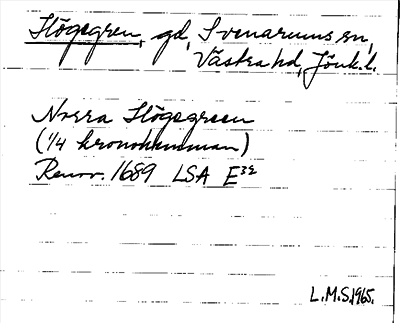 Högegren, gd, Svenarums sn,
Västra hd, Jönk.l.
Norra Högegreen
(1/4 kronohemman)
Renov. 1689 LSA E 32
L.M.S. 1965.